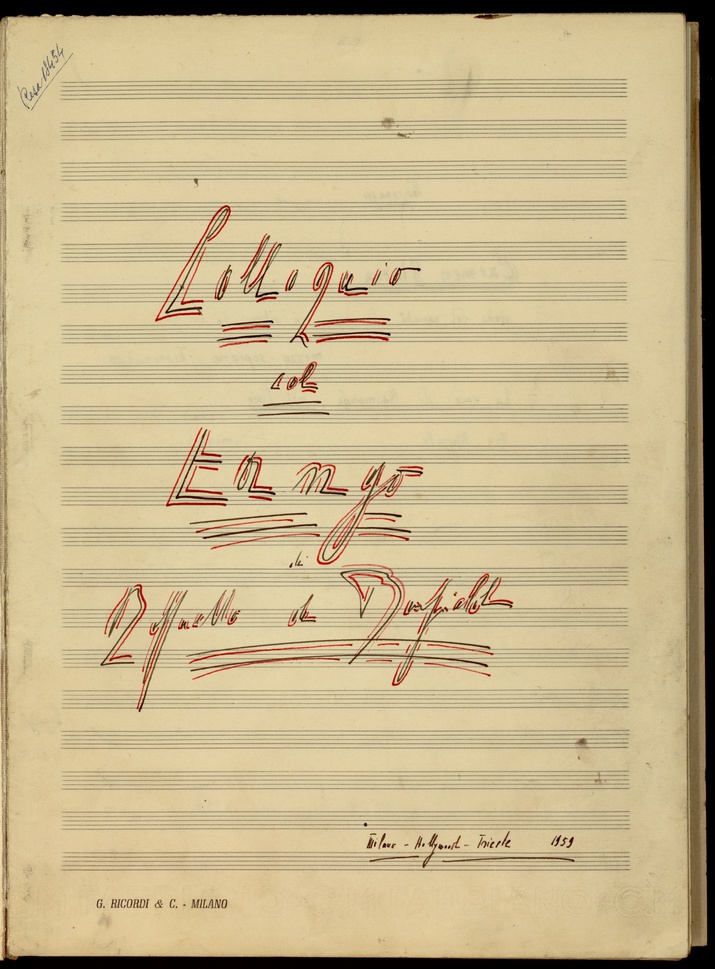 Colloquio
col
Tango
di
Raffaello de Banfield
Milano - Hollywood - Trieste 1959
G. RICORDI & C. - MILANO